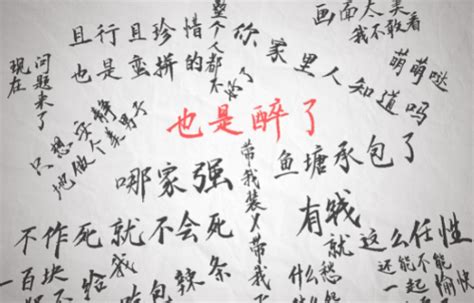 且行且珍惜
也是蛮拼的
整个人都不好了
你家里人知道吗
画面太美
我不敢看
萌萌哒
问题来了
现在
只想安静
地做个美男子
也是醉了
哪家强
带我装X带我
鱼塘承包了
不作死就不会死
有钱
就这么任性
一百块
不给我
包辣条
什么愁
还能不能
一起愉